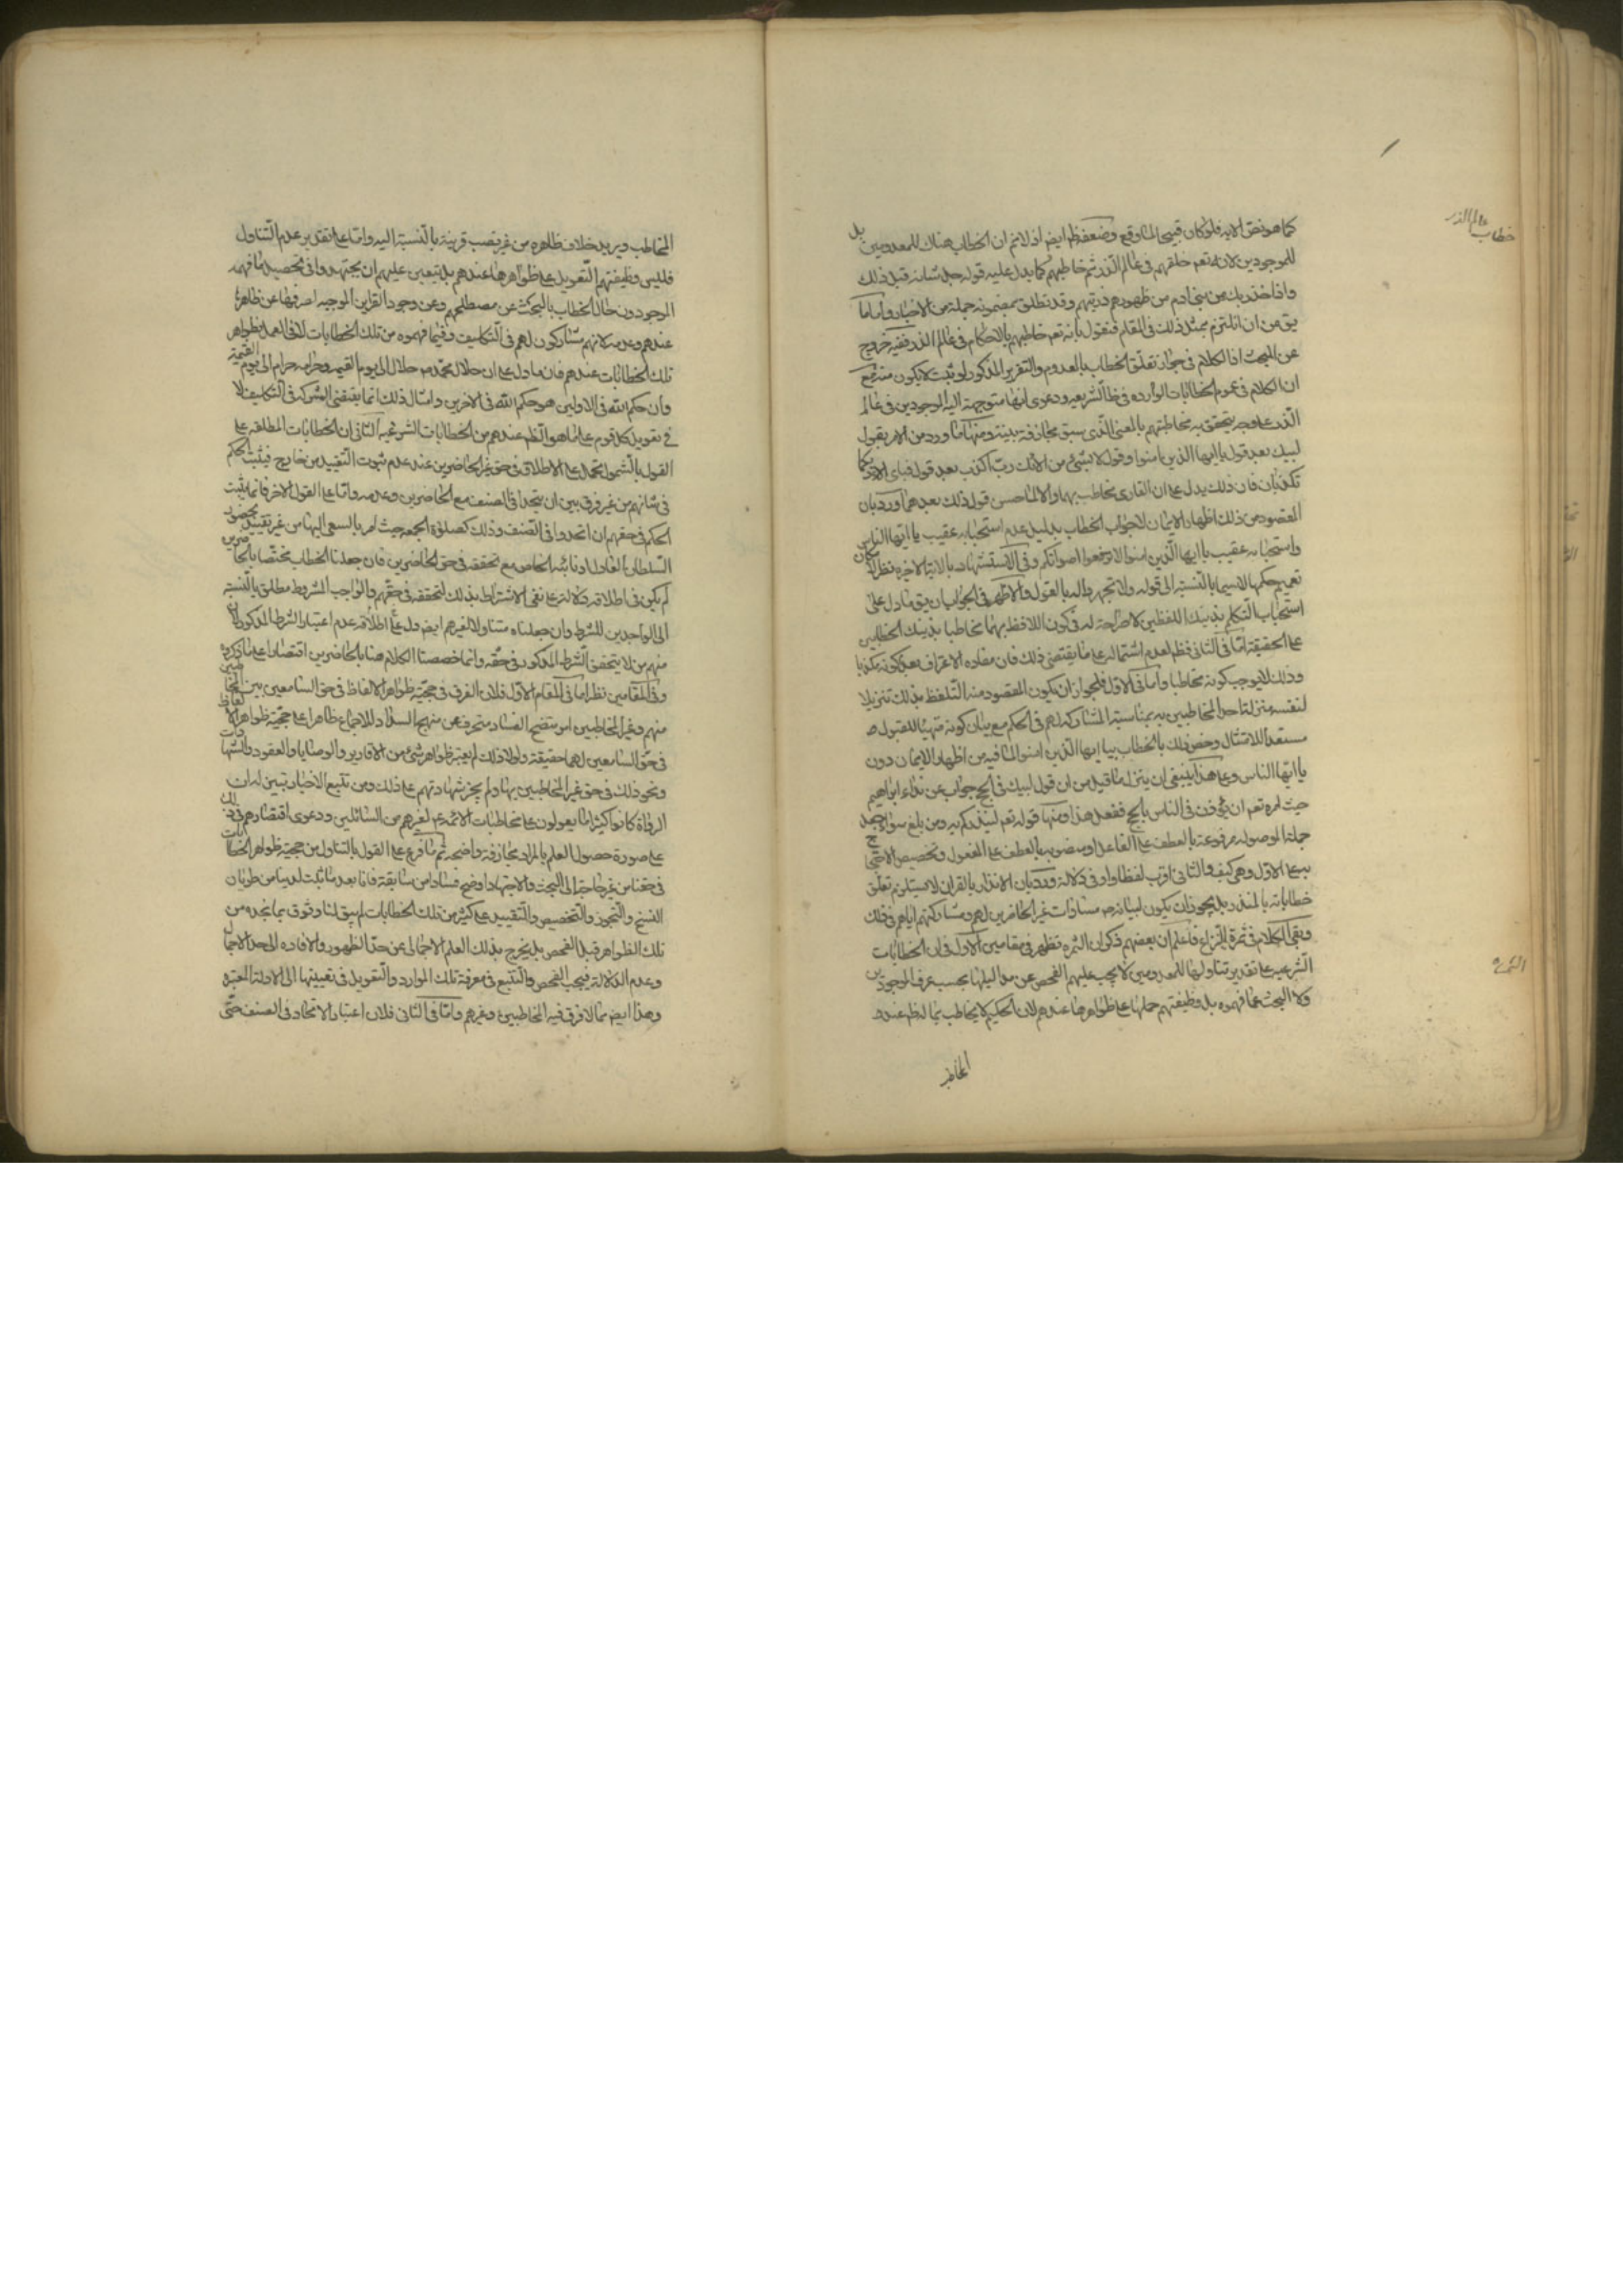 خطاب عالم الذر
كما هو نص الايه فلو كان قبيحا لما وقع وضعفه ظ ايض اذ لانم ان الخطاب هناك للمعدومين بل
للموجودين لانه تعم خلقهم فى عالم الذر ثم خاطبهم كما يدل عليه قوله جل شانه قبل ذلك
واذ اخذ ربك من بنى ادم من ظهورهم ذريتهم وقد نطلق بمضمونه جملة من الاخبار واما ما
يق من ان انلتزم بمثل ذلك فى المقام فنقول بانه تعم خاطبهم بالاحكام فى عالم الذر ففيه خروج
عن المبحث اذ الكلام فى جواز تعلق الخطاب بالمعدوم والتقرير المذكور لو ثبت لا يكون منه مع
ان الكلام فى عموم الخطابات الوارده فى ظ الشريعه ودعوى انها متوجهة الى الموجودين فى عالم
الذر على وجه يتحقق به مخاطبتهم بالمعنى الذى سبق مجازفة بينة ومنها ما ورد من الامر بقول
لبيك بعد قول يا ايها الذين امنوا وقول لا بشئ من الائك رب اكذب بعد قول فباى الاء ربكما
تكذبان فان ذلك يدل على ان القارى مخاطب بهما والا لما حسن قول ذلك بعدهما ورد بان
المقصود من ذلك اظهار الايمان لا جواب الخطاب بدليل عدم استحبابه عقيب يا ايها الناس
واستحبابه عقيب يا ايها الذين امنوا لا ترفعوا اصواتكم وفى الاستشهاد بالاية الاخيره نظر لمكان
تعميم حكمها لا سيما بالنسبة الى قوله ولا تجهروا له بالقول والاظهر فى الجواب ان يق ما دل على
استحباب التكلم بذينك اللفظين لا صراحة له فى كون اللافظ بهما مخاطبا بذينك الخطابين
على الحقيقة اما فى الثانى فظ لعدم اشتماله على ما يقتضى ذلك فان مفاده الاعتراف بعدم كونه مكذبا
وذلك لا يوجب كونه مخاطبا واما فى الاول فلجواز ان يكون المقصود منه التلفظ بذلك تنزيلا
لنفسه منزلة احد المخاطبين به بمناسبة المشاركة لهم فى الحكم مع بيان كونه متهيئا للقبول
مستعدا للامتثال وخص ذلك بالخطاب بيا ايها الذين امنوا لما فيه من اظهار الايمان دون
يا ايها الناس وعلى هذا ينبغى ان ينزل ما قيل من ان قول لبيك فى الحج جواب عن نداء ابراهيم
حيث امره تعم ان يؤذن فى الناس بالحج ففعل هذا ومنها قوله تعم لينذركم به ومن بلغ سواء جعل
جملة الموصوله مرفوعة بالعطف على الفاعل او منصوبه بالعطف على المفعول وتخصيص الاحتجاج
به على الاول وهى كيف والثانى اقرب لفظا واوفى دلالة ورد بان الانذار بالقران لا يستلزم تعلق
خطاباته بالمنذر بل يجوز ان يكون لبيانه مساوات غير الحاضرين لهم ومشاركتهم اياهم فى ذلك
وبقى الكلام فى ثمرة النزاع فاعلم ان بعضهم ذكر ان الثمره تظهر فى مقامين الاول فى ان الخطابات
الشرعيه على تقدير تناولها للمعدومين لا يجب عليهم الفحص عن مداليلها بحسب عرف الموجودين
ولا البحث عما فهموه بل وظيفتهم حملها على ظواهرها عندهم لان الحكيم لا يخاطب بما له ظ عند
الثمرة
المخاطب
المخاطب ويريد خلاف ظاهره من غير نصب قرينة بالنسبة اليه واما على تقدير عدم التناول
فليس وظيفتهم التعويل على ظواهرها عندهم بل يتعين عليهم ان يجتهدوا فى تحصيل ما فهمه
الموجودون حال الخطاب بالبحث عن مصطلحهم وعن وجود القراين الموجبه لصرفها عن ظاهرها
عندهم وعدمه لانهم مشاركون لهم فى التكاليف وفيما فهموه من تلك الخطابات لا فى العمل بظواهر
تلك الخطابات عندهم فان ما دل على ان حلال محمد ص حلال الى يوم القيمه وحرامه حرام الى يوم القيمة
وان حكم الله فى الاولين هو حكم الله فى الاخرين وامثال ذلك انما يقتضى الشركه فى التكاليف لا
فى تعويل كل قوم على ما هو الظ عندهم من الخطابات الشرعيه الثانى ان الخطابات المطلقه على
القول بالشمول تحمل على الاطلاق فى حق غير الحاضرين عند عدم ثبوت التقييد من خارج فيثبت الحكم
فى شانهم من غير فرق بين ان يتحدا فى الصنف مع الحاضرين وعدمه واما على القول الاخر فانما يثبت
الحكم فى حقهم ان اتحدوا فى الصنف وذلك كصلوة الجمعه حيث امر بالسعى اليها من غير تقييد بحضور
السلطان العادل او نائبه الخاص مع تحققه فى حق الحاضرين فان جعلنا الخطاب مختصا بالحاضرين
لم يكن فى اطلاقه دلالة على نفى الاشتراط بذلك لتحققه فى حقهم والواجب المشروط مطلق بالنسبة
الى الواجدين للشرط وان جعلناه متناولا لغيرهم ايض دل على اطلاقه عدم اعتبار الشرط المذكور لان
منهم من لا يتحقق الشرط المذكور فى حقه وانما خصصنا الكلام هنا بالحاضرين اقتصارا على ما ذكره
وفى المقامين نظر اما فى المقام الاول فلان الفرق فى حجية ظواهر الالفاظ فى حق السامعين بين المخاطبين
منهم وغير المخاطبين امر متضح الفساد منحرف عن منهج السداد للاجماع ظاهرا على حجية ظواهر الالفاظ
فى حق السامعين لها حقيقة ولولا ذلك لم يعتبر ظواهر شئ من الاقارير والوصايا والعقود والشهادات
ونحو ذلك فى حق غير المخاطبين بها ولم يجز شهادتهم على ذلك ومن تتبع الاخبار تبين له ان
الرواة كانوا كثيرا ما يعولون على مخاطبات الائمه ع لغيرهم من السائلين ودعوى اقتصارهم فى ذلك
على صورة حصول العلم بالمراد مجازفة واضحه ثم ما فرع على القول بالتناول من حجية ظواهر الخطابات
فى حقنا من غير حاجة الى البحث والاجتهاد اوضح فسادا من سابقه فانا بعد ما ثبت لدينا من طريان
النسخ والتجوز والتخصيص والتقييد على كثير من تلك الخطابات لم يبق لنا وثوق بما نجده من
تلك الظواهر قبل الفحص بل يخرج بذلك العلم الاجمالى عن حد الظهور والافاده الى حد الاجمال
وعدم الدلالة فيجب الفحص والتتبع فى معرفة تلك الموارد والتعويل فى تعيينها الى الادلة المعتبره
وهذا ايض مما لا فرق فيه المخاطبين وغيرهم واما فى الثانى فلان اعتبار الاتحاد فى الصنف حتى